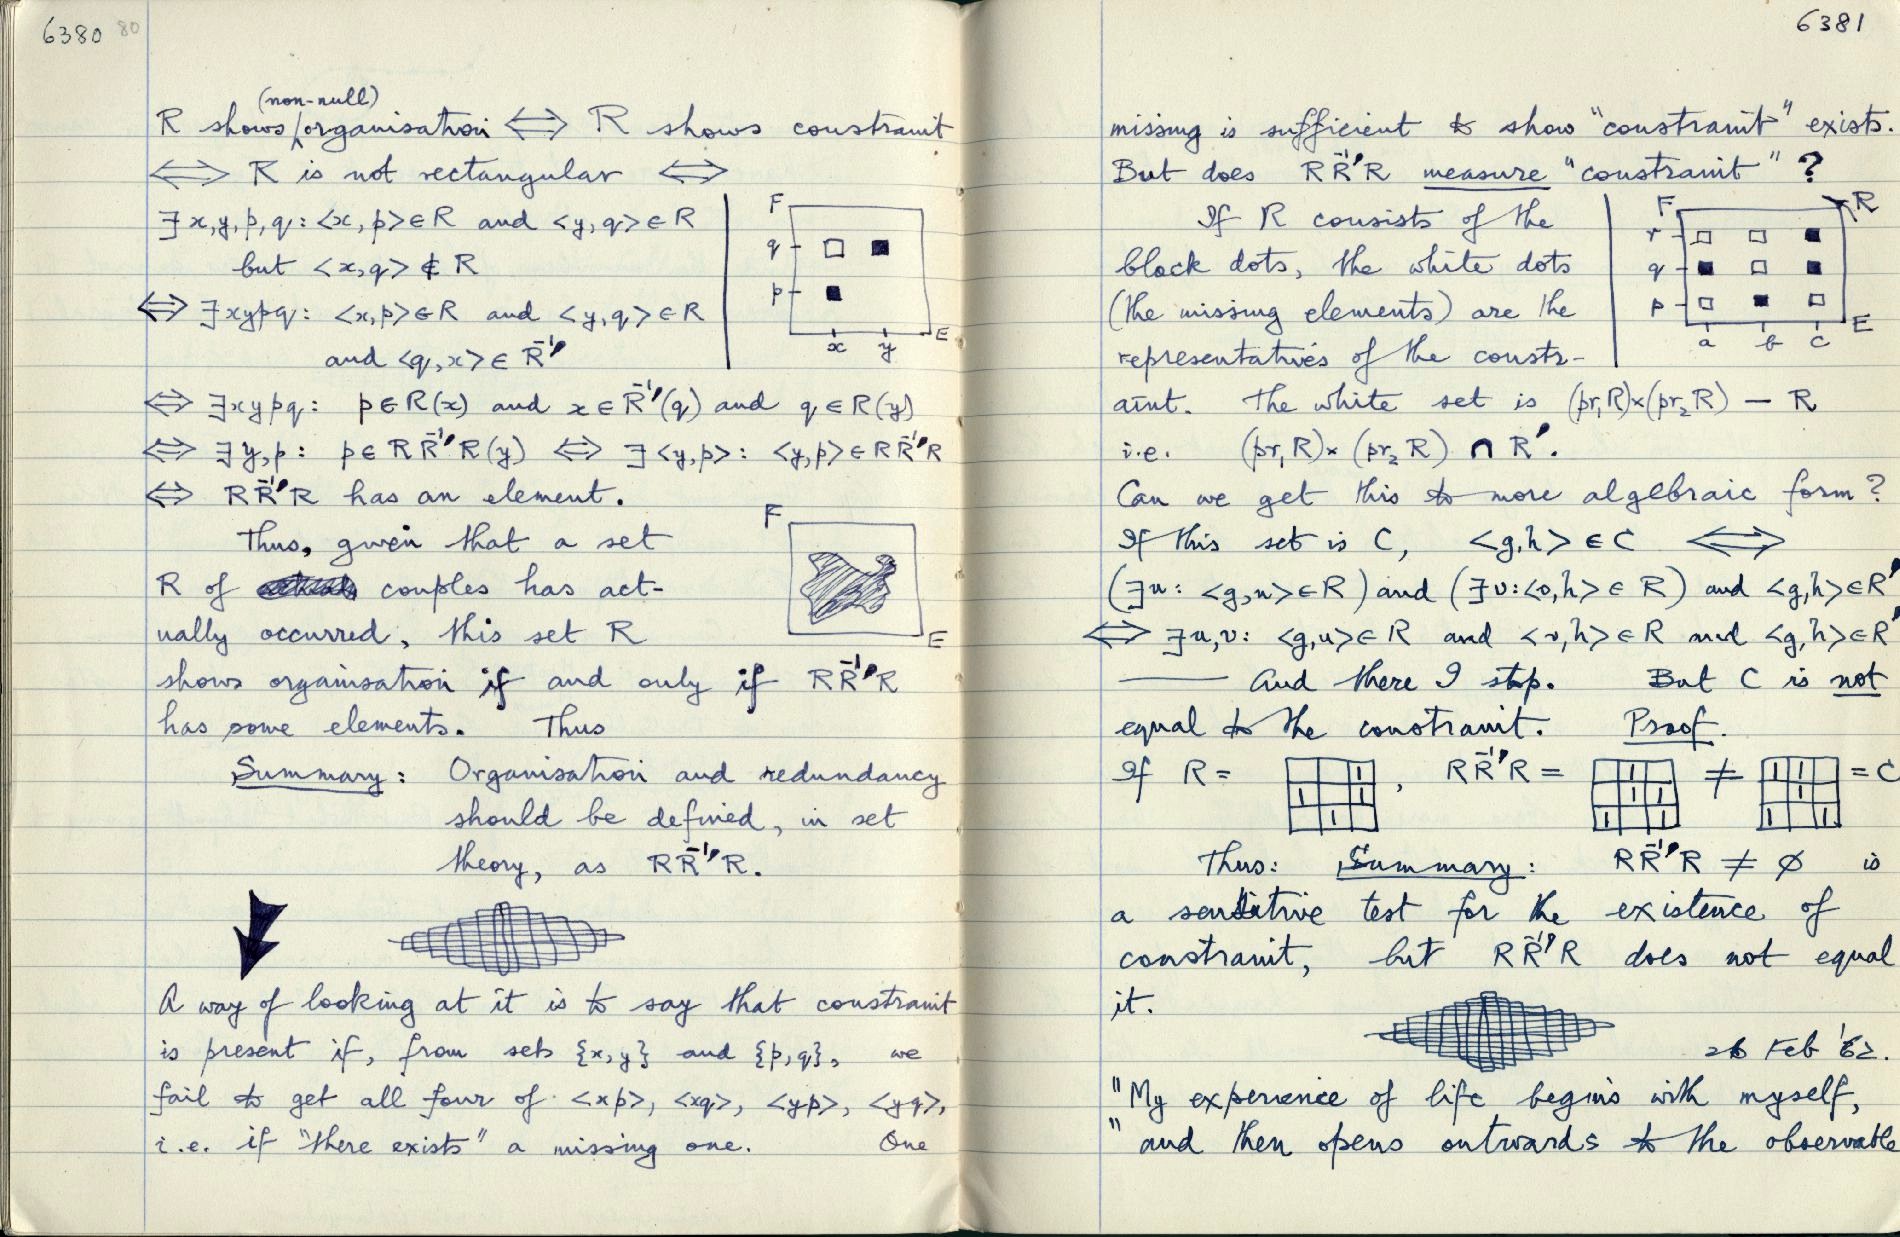 6380 80
(non-null)
R shows organisation ⟺ R shows constraint
⟺ R is not rectangular ⟺
∃ x, y, p, q: <x, p> ∈ R and <y, q> ∈ R
but <x, q> ∉ R
⟺ ∃ x y p q: <x, p> ∈ R and <y, q> ∈ R
and <q, x> ∈ R̄¹′
F
q
p
x y
E
⟺ ∃ x y p q: p ∈ R(x) and x ∈ R̄¹′(q) and q ∈ R(y)
⟺ ∃ y, p: p ∈ R R̄¹′ R(y) ⟺ ∃ <y, p>: <y, p> ∈ R R̄¹′ R
⟺ R R̄¹′ R has an element.
Thus, given that a set
R of couples has act-
ually occurred, this set R
shows organisation if and only if R R̄¹′ R
has some elements. Thus
F
E
Summary: Organisation and redundancy
should be defined, in set
theory, as R R̄¹′ R.
A way of looking at it is to say that constraint
is present if, from sets {x, y} and {p, q}, we
fail to get all four of <xp>, <xq>, <yp>, <yq>,
i.e. if "there exists" a missing one. One
6381
missing is sufficient to show "constraint" exists.
But does R R̄¹′ R measure "constraint"?
If R consists of the
black dots, the white dots
(the missing elements) are the
representatives of the constr-
aint. The white set is (pr₁R)×(pr₂R) — R
F
R
r
q
p
a b c
E
i.e. (pr₁R)× (pr₂R) ∩ R′.
Can we get this to more algebraic form?
If this set is C, <g, h> ∈ C ⟺
(∃u: <g, u> ∈ R) and (∃v: <v, h> ∈ R) and <g, h> ∈ R′
⟺ ∃u, v: <g, u> ∈ R and <v, h> ∈ R and <g, h> ∈ R′
—— And there I stop. But C is not
equal to the constraint. Proof.
If R = , R R̄¹′ R = ≠ = C
Thus: Summary: R R̄¹′ R ≠ ∅ is
a sensitive test for the existence of
constraint, but R R̄¹′ R does not equal
it.
26 Feb '62.
"My experience of life begins with myself,
"and then opens outwards to the observable